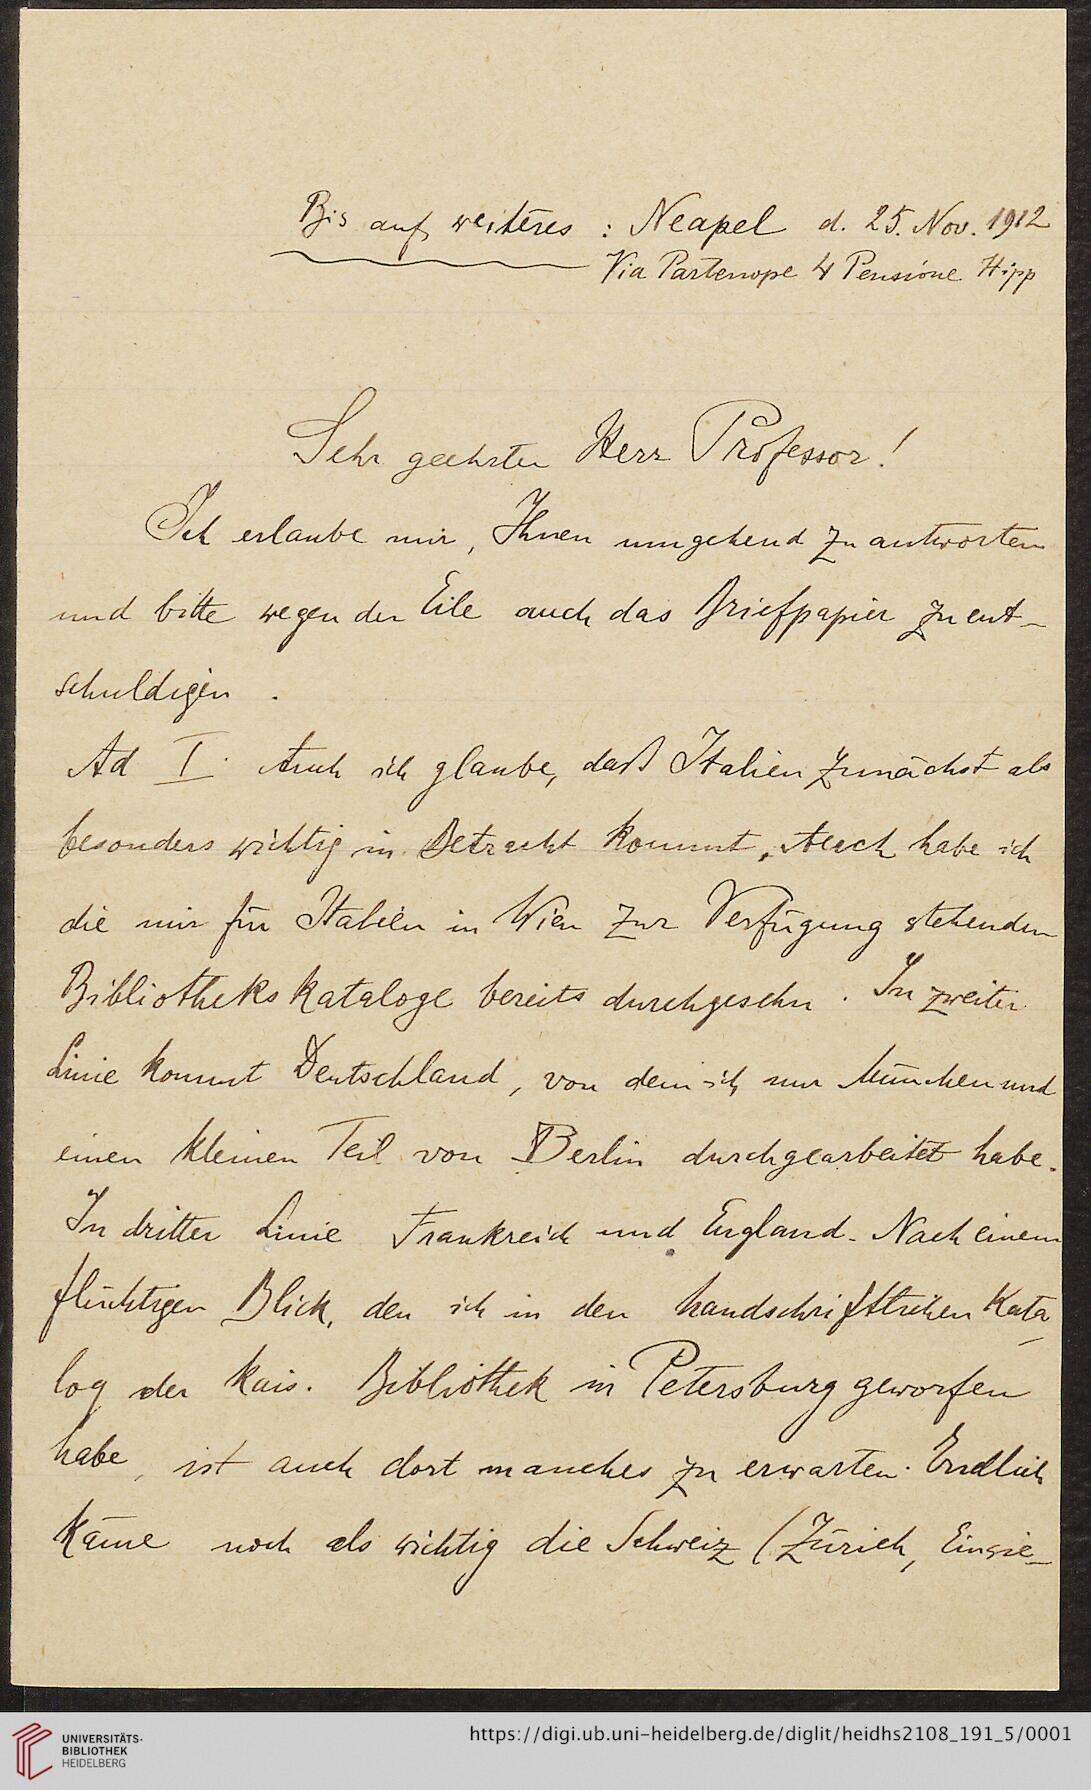 Bis auf weiteres : Neapel d. 25. Nov. 1912
Via Partenope 4 Pensione Hipp
Sehr geehrter Herr Professor!
Ich erlaube mir, Ihnen umgehend zu antworten
und bitte wegen der Eile auch das Briefpapier zu ent-
schuldigen.
Ad I. Auch ich glaube, daß Italien zunächst als
besonders wichtig in Betracht kommt. Auch habe ich
die mir für Italien in Wien zur Verfügung stehenden
Bibliotheks kataloge bereits durchgesehn. In zweiter
Linie kommt Deutschland, von dem ich nur München und
einen kleinen Teil von Berlin durchgearbeitet habe.
In dritter Linie Frankreich und England. Nach einem
flüchtigen Blick, den ich in den handschriftlichen Kata-
log der Kais. Bibliothek in Petersburg geworfen
habe, ist auch dort manches zu erwarten. Endlich
käme noch als wichtig die Schweiz (Zürich, Einsie-
UNIVERSITÄTS-
BIBLIOTHEK
HEIDELBERG
https://digi.ub.uni-heidelberg.de/diglit/heidhs2108_191_5/0001